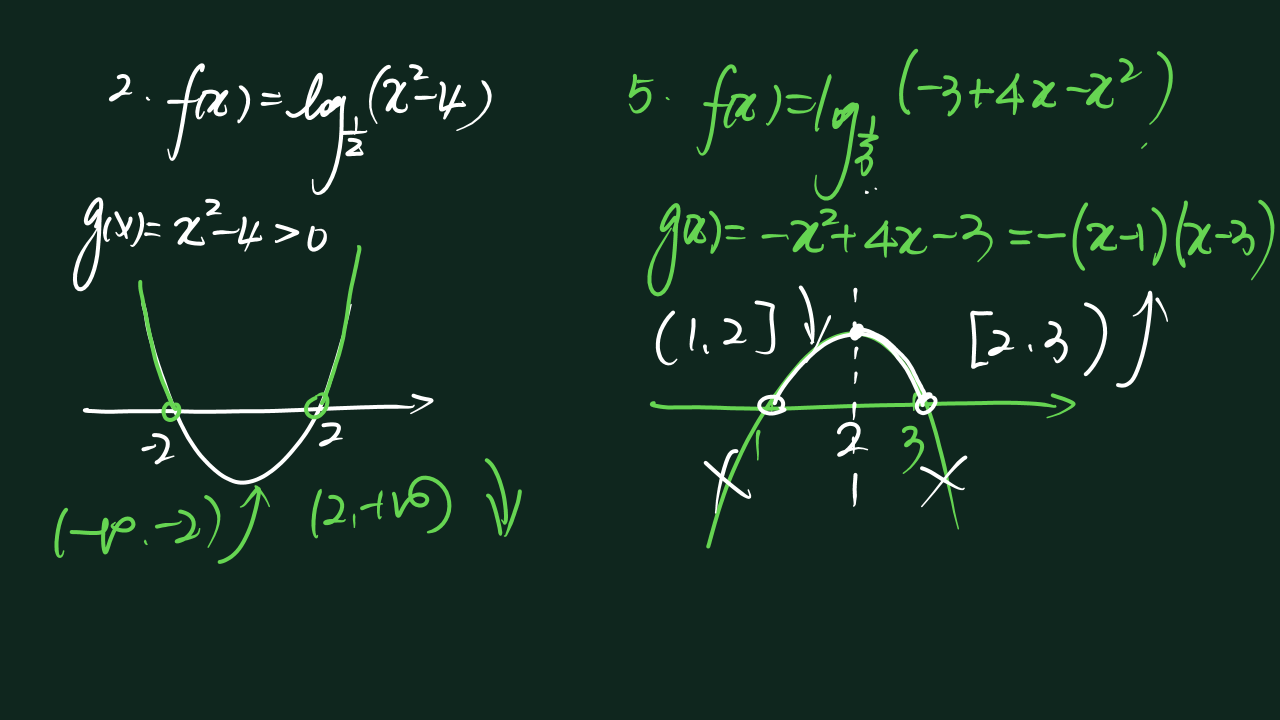 2. f(x)=log_{1/2}(x²-4)
g(x)=x²-4>0
-2 2
(-∞.-2)↗ (2,+∞)↘
5. f(x)=log_{1/3}(-3+4x-x²)
g(x)=-x²+4x-3=-(x-1)(x-3)
(1,2]↘ [2.3)↗
1 2 3